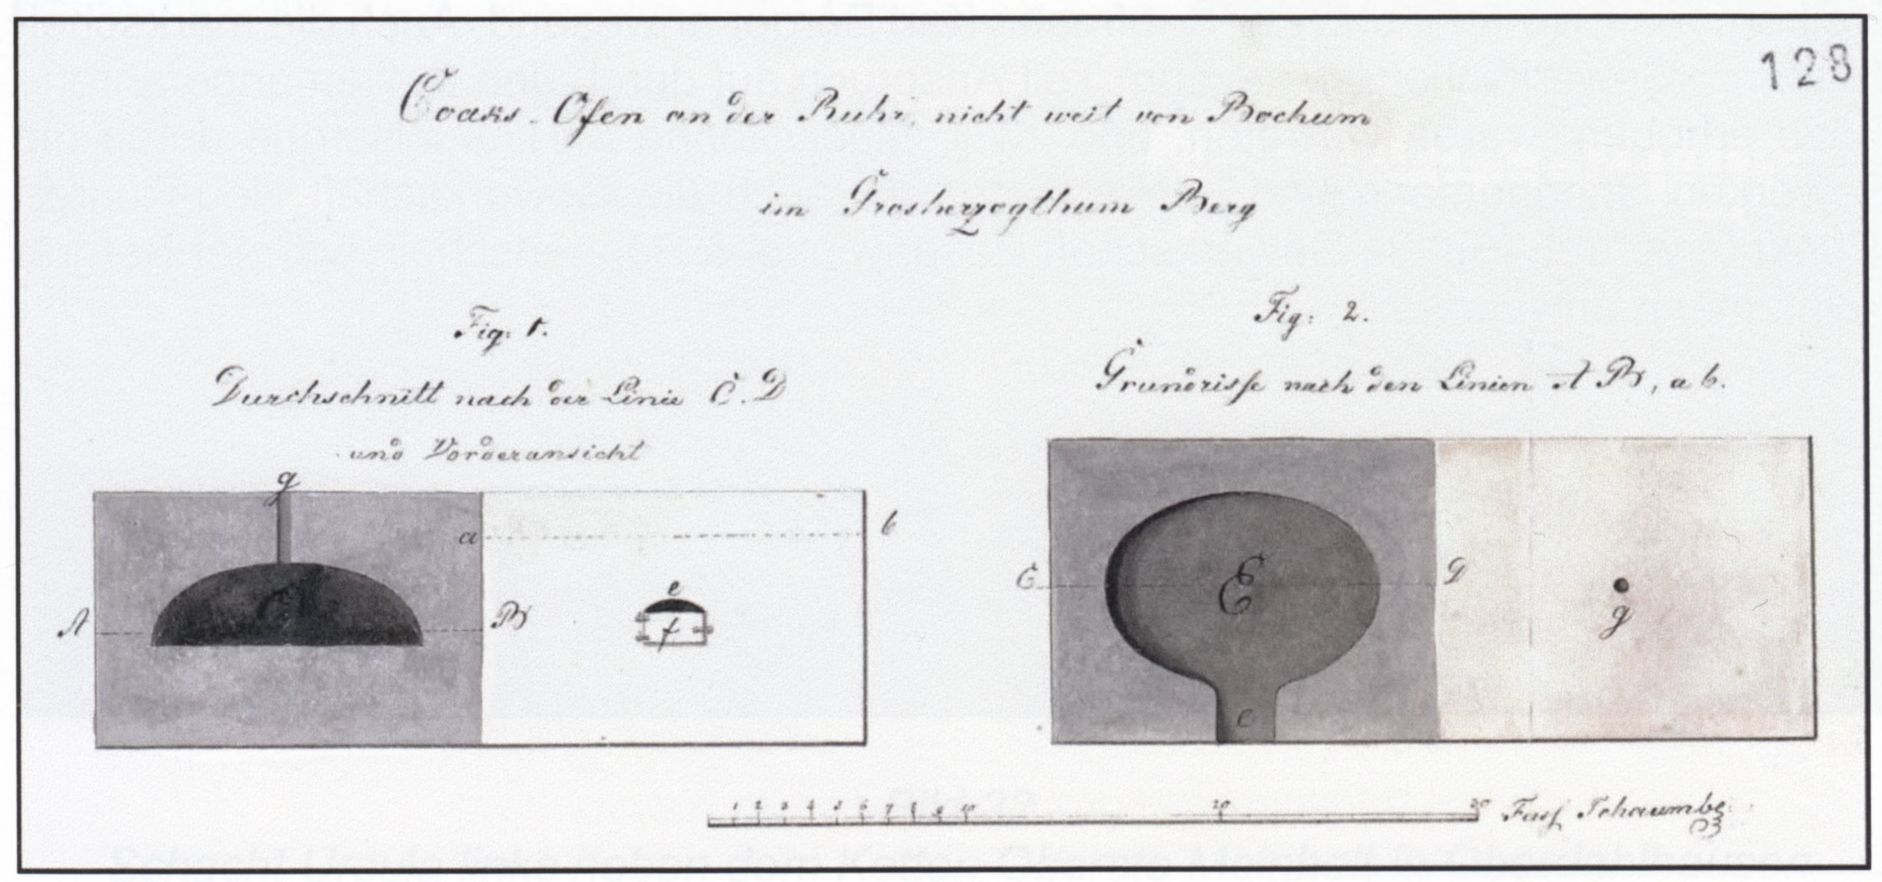 128
Coaks-Ofen an der Ruhr, nicht weit von Bochum
im Grosherzogthum Berg
Fig: 1.
Durchschnitt nach der Linie C. D
und Vorderansicht
Fig: 2.
Grundrisse nach den Linien A B, a b.
g
a b
e
f
A B
E
C D
g
e
1 2 3 4 5 6 7 8 9 10 20 30 Fuss Schaumbg.